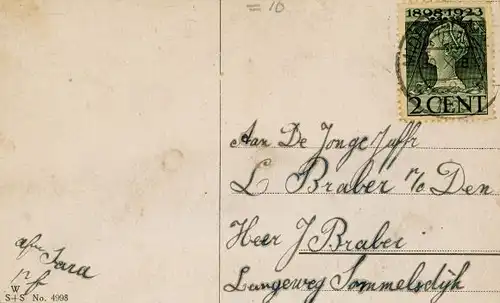 = 10
1898-1923
2 CENT
Aan De Jonge Juffr
L Braber p/a Den
Heer J Braber
Langeweg Sommelsdijk
afz Sara
p f
W
S+S No. 4998